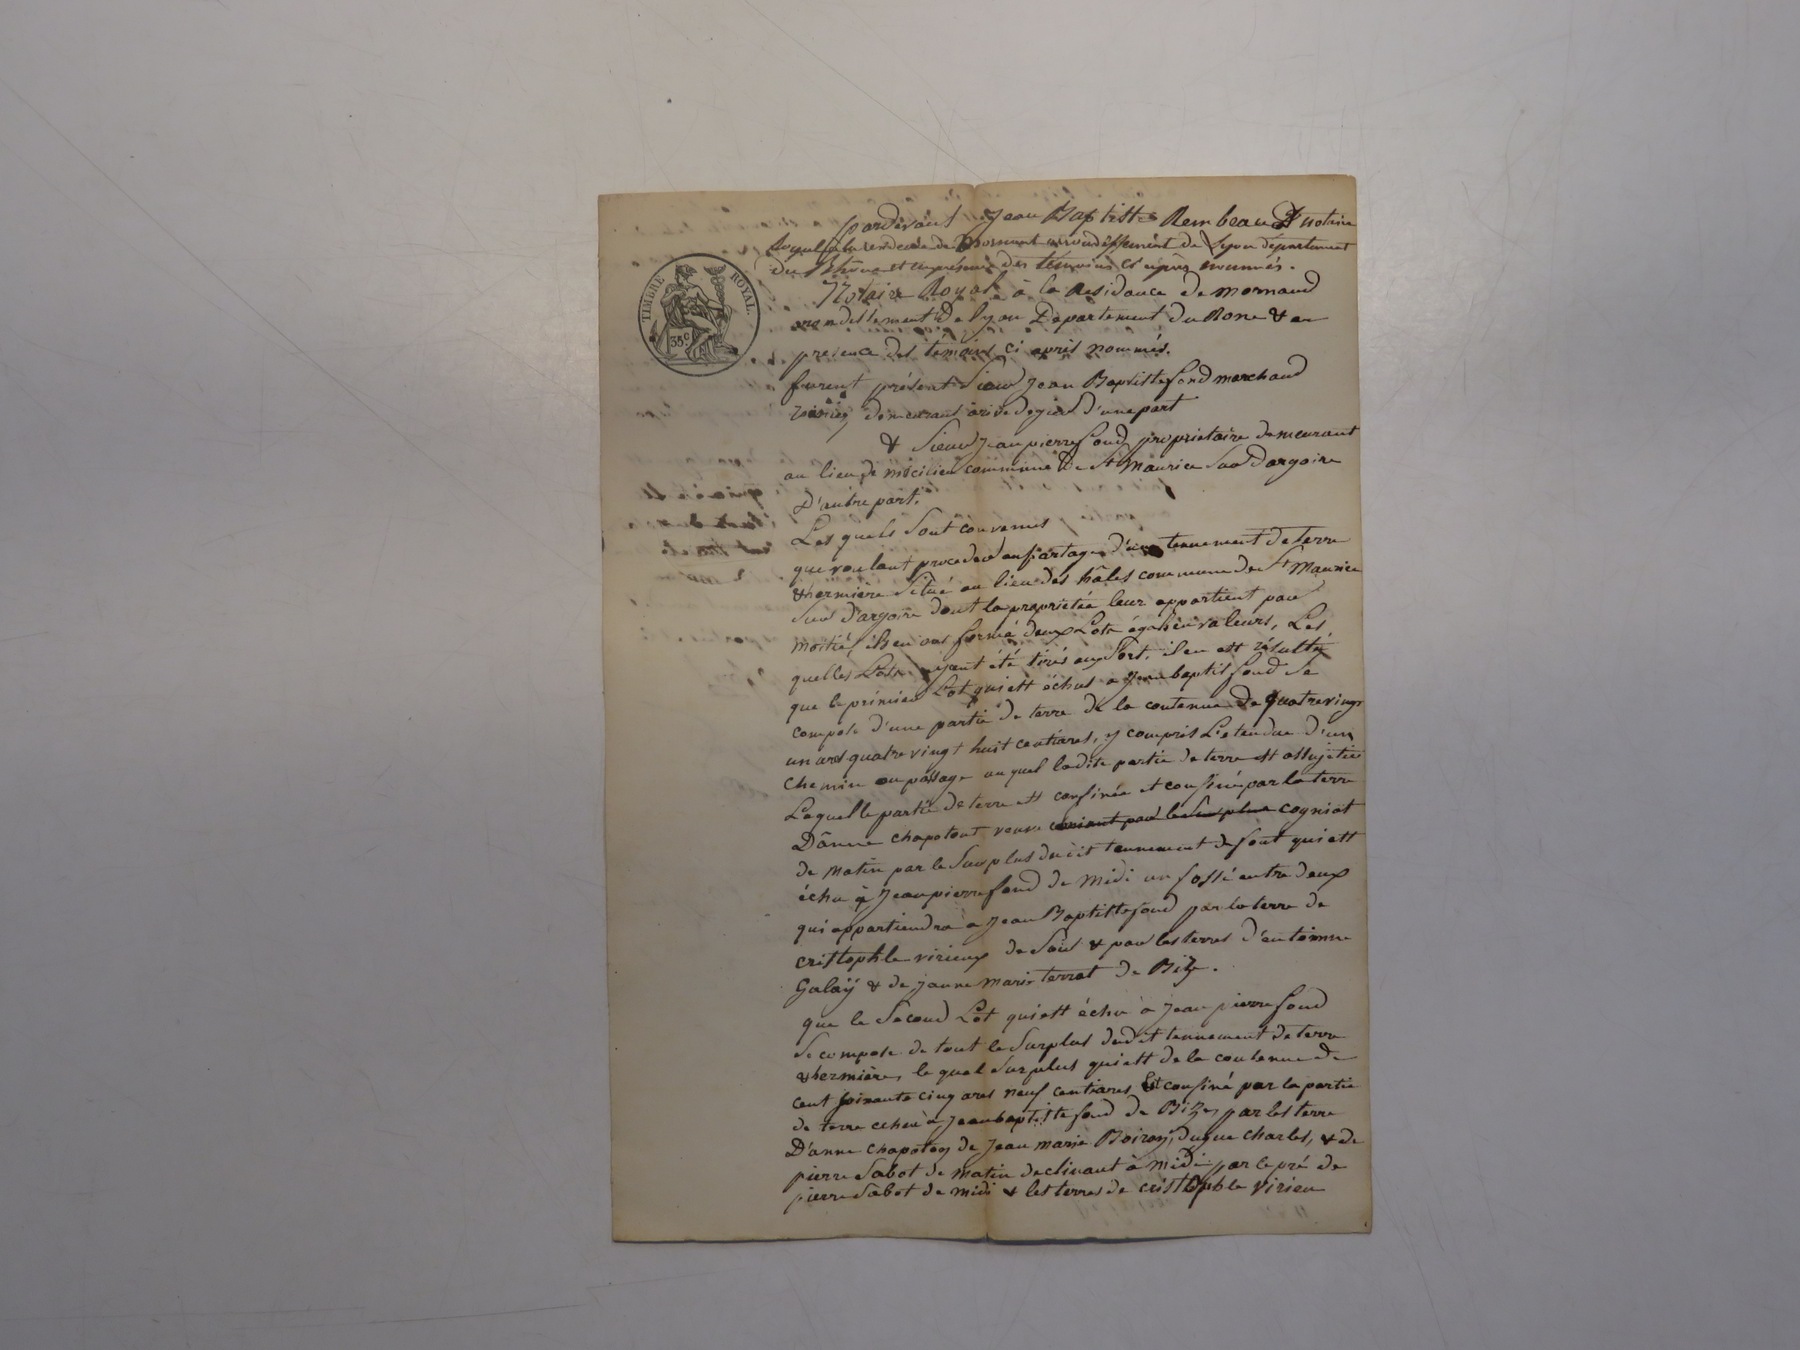 TIMBRE ROYAL.
35c
pardevant Jean Baptiste Rembeaud notaire
Royal à la residence de Mornant arrondissement de Lyon département
du Rhône et en présence des témoins ci après nommés.
Notaire Royal à la Residance de mornand
arondissement de lyon Departement du Rone & en
presence des temoins ci apris nommés.
furent présent Sieur Jean Baptiste fond marchand
demeurant à rive de gier d'une part
& Sieur Jean pierre fond propriétaire demeurant
au lieu de commune de St Maurice Sur Dargoire
D'autre part.
Les quels Sont convenus
que voulant proceder au partage d'un tennement de terre
& hermière Situé au lieu des hâles commune de St Maurice
Sur D'argoire dont la propriétée leur appartient par
moitié, ils en ont formé deux Lots égah en valeurs, Les
quelles Lots ayant été tirés au Sort, il en est résulté,
que le prémier Lot qui est échus a Jean baptist fond Se
compose d'une partie de terre de la contenue de quatre vingt
un ares quatre vingt huit centiares, y compris L'etendue d'un
chemin ou passage au quel ladite partie de terre est assujetie
Laquelle partie de terre est confinée et confiné par la terre
D'ânne chapotont veuve cogniat
de matin par le Surplus du dit tennement de font qui est
échu à Jean pierre fond de Midi un fossé entre deux
qui appartiendra à Jean Baptiste fond par la terre de
cristophle virieux de Soir & par les terres d'entoinne
Galaÿ & de Janne marie terrat de Bize.
que le Second Lot qui est échu à Jean pierre fond
Se compose de tout le Surplus dudit tennement de terre
& hermière, le quel Surplus qui est de la contenue de
cent Soixante cinq ares neuf centiares Est confiné par la partie
de terre echeu à Jean baptiste fond de Bize, par les terre
D'anne chapoton de Jean marie Boiron, dugue charles, & de
pierre Sabot de matin declinant à midi par le pré de
pierre Sabot de midi & les terres de cristophle Virieu